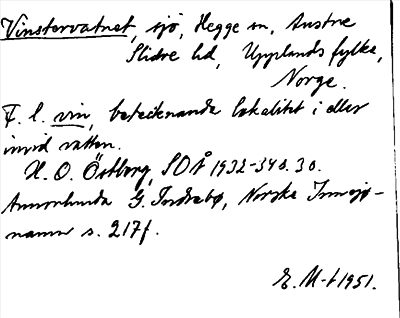 Vinstervatnet, sjö, Hegge sn, Austre
Slidre hd, Upplands fylke,
Norge.
F. l. vin, betecknande lokalitet i eller
invid vatten.
H. O. Östberg, SOÅ 1932-34 s. 30.
Annorlunda G. Indrebø, Norske Innsjø-
namn s. 217f.
E. M-t 1951.